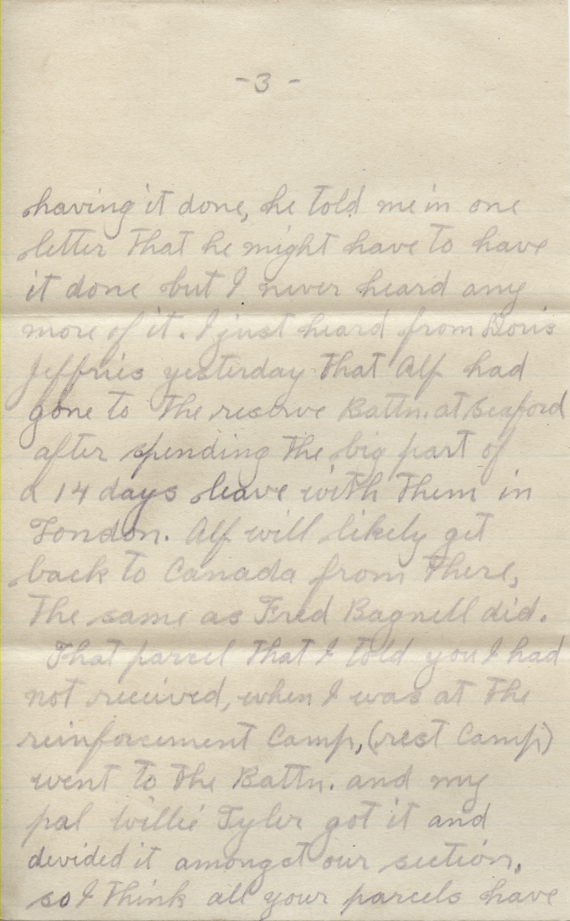 -3-
having it done, he told me in one
letter that he might have to have
it done but I never heard any
more of it. I just heard from Doris
Jeffries yesterday that Alf had
gone to the reserve Battn. at Seaford
after spending the big part of
a 14 days leave with them in
London. Alf will likely get
back to Canada from there,
the same as Fred Bagnell did.
That parcel that I told you I had
not received, when I was at the
reinforcement Camp, (rest Camp)
went to the Battn. and my
pal Willie Tyler got it and
divided it amongst our section,
so I think all your parcels have